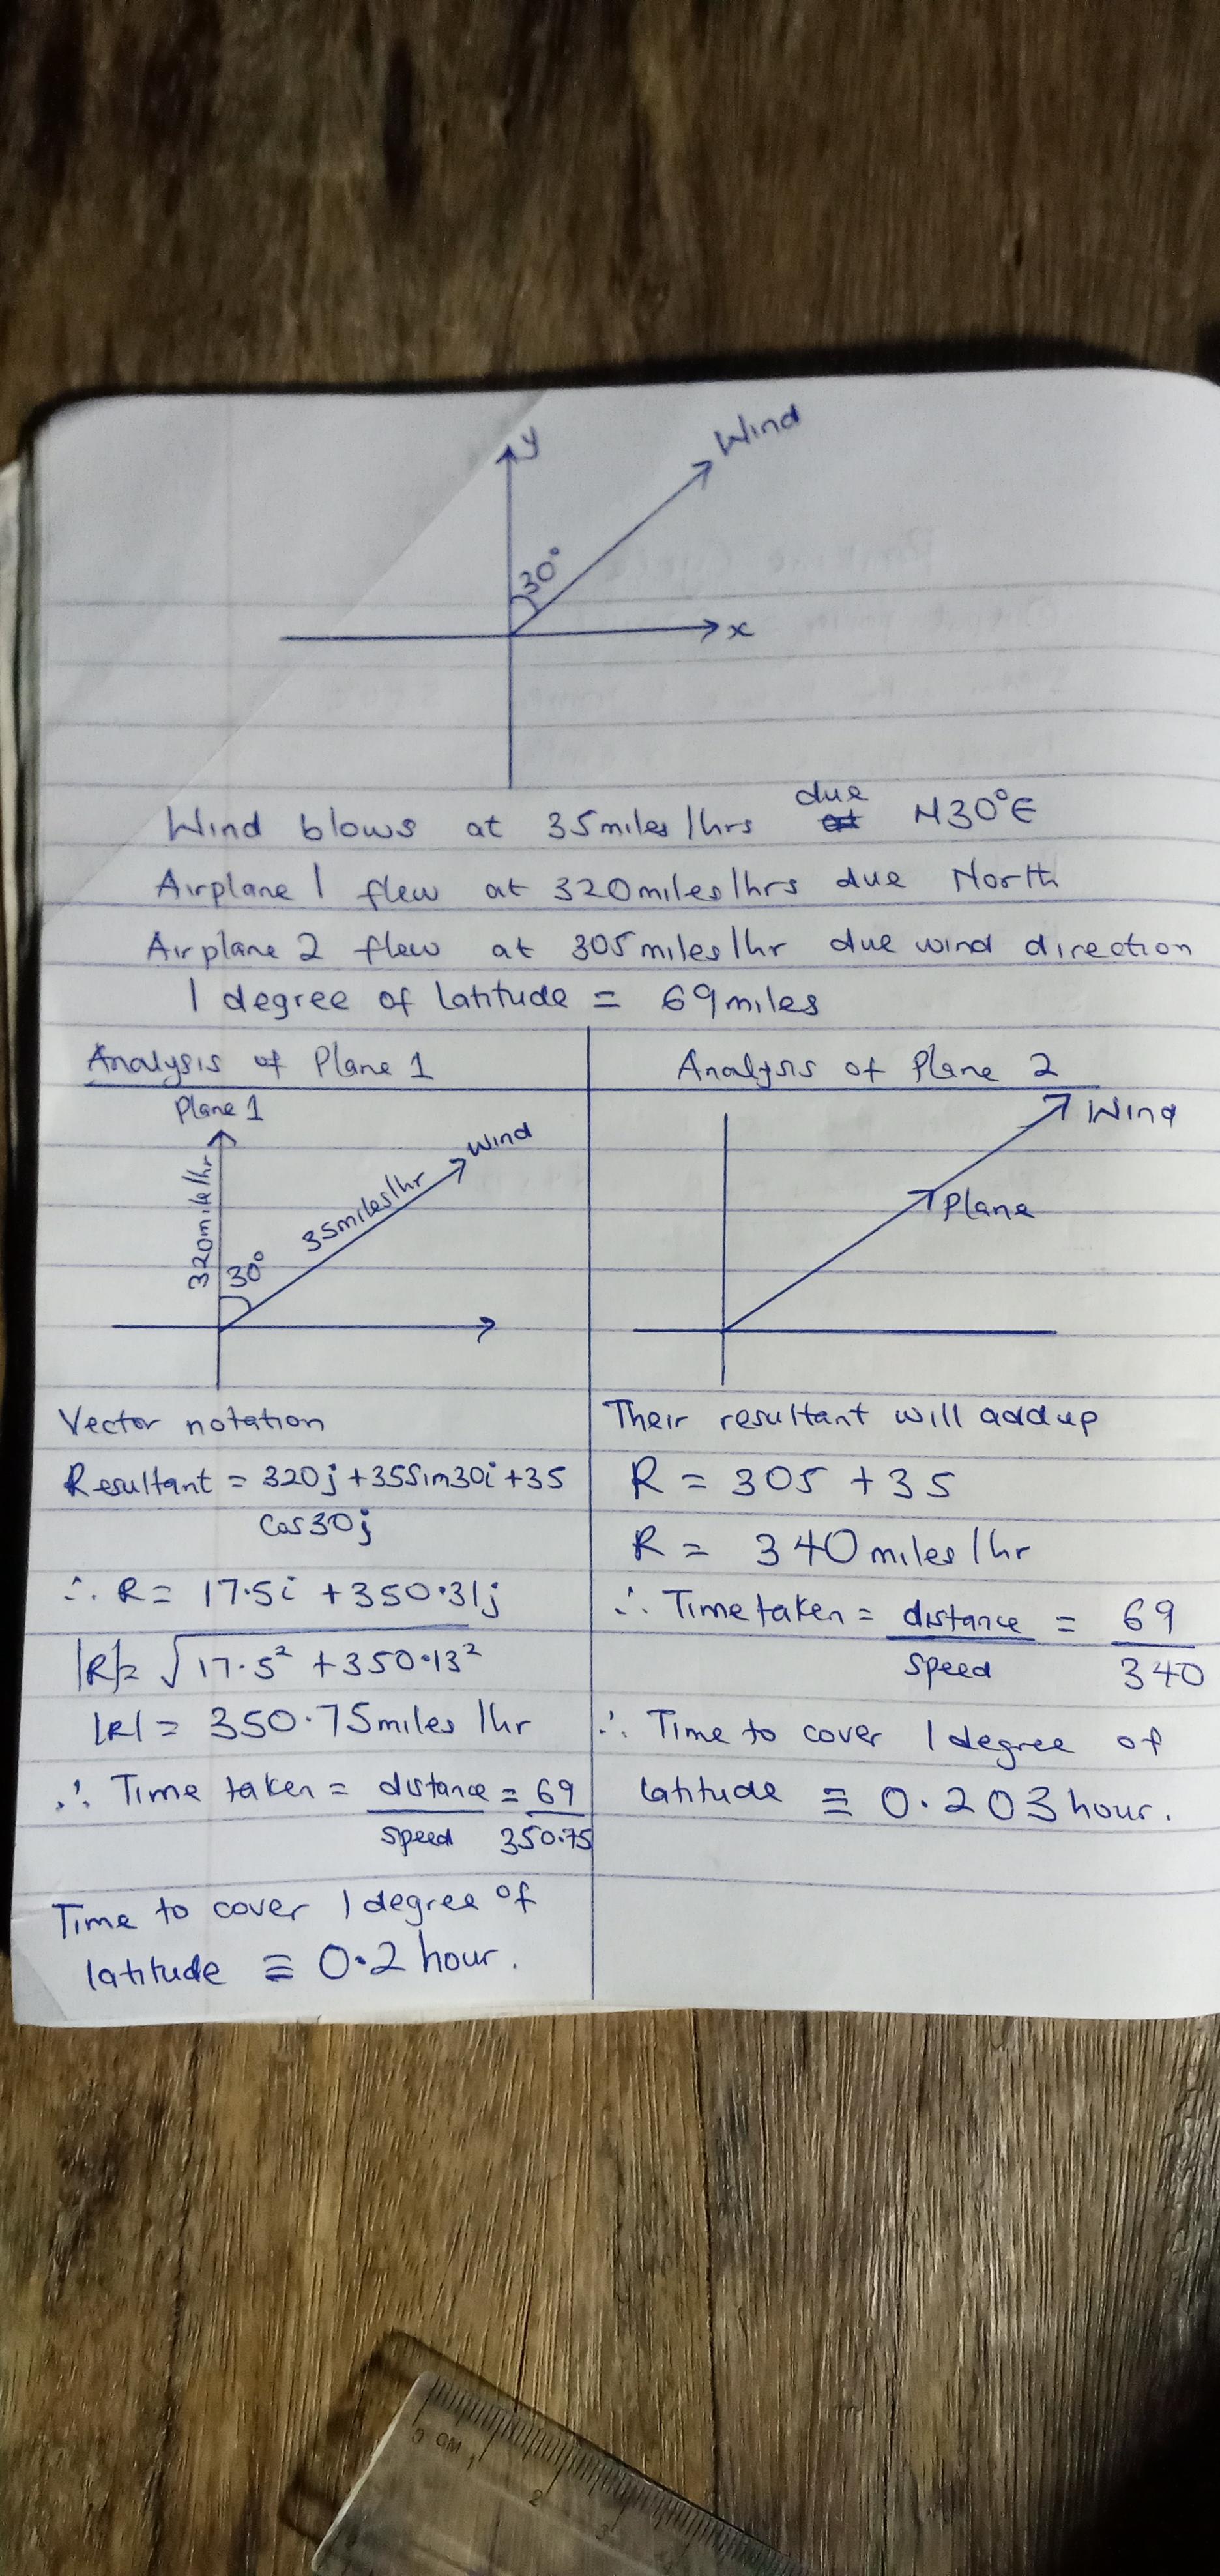 y
Wind
30°
x
Wind blows at 35miles/hrs due N30°E
Airplane 1 flew at 320miles/hrs due North
Airplane 2 flew at 305miles/hr due wind direction
1 degree of latitude = 69miles
Analysis of Plane 1
Plane 1
Wind
320mile/hr
35miles/hr
30°
Vector notation
Resultant = 320j + 35Sin30i + 35
Cos30j
∴ R = 17.5i + 350.31j
|R|= √17.5² + 350.13²
|R| = 350.75miles/hr
∴ Time taken = distance = 69
speed 350.75
Time to cover 1 degree of
latitude ≅ 0.2 hour.
Analysis of Plane 2
Wind
Plane
Their resultant will add up
R = 305 + 35
R = 340miles/hr
∴ Time taken = distance = 69
speed 340
∴ Time to cover 1 degree of
latitude ≅ 0.203 hour.
0 CM 1
2
3